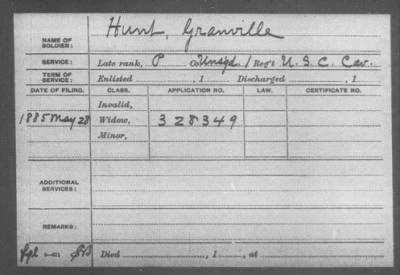 NAME OF SOLDIER: Hunt, Granville
SERVICE: Late rank, P Co Unasgd. 1 Reg't U. S. C. Cav.
TERM OF SERVICE: Enlisted , 1 Discharged , 1
DATE OF FILING. CLASS. APPLICATION NO. LAW. CERTIFICATE NO.
Invalid,
1885 May 28 Widow, 328349
Minor,
ADDITIONAL SERVICES:
REMARKS:
Died , 1 , at